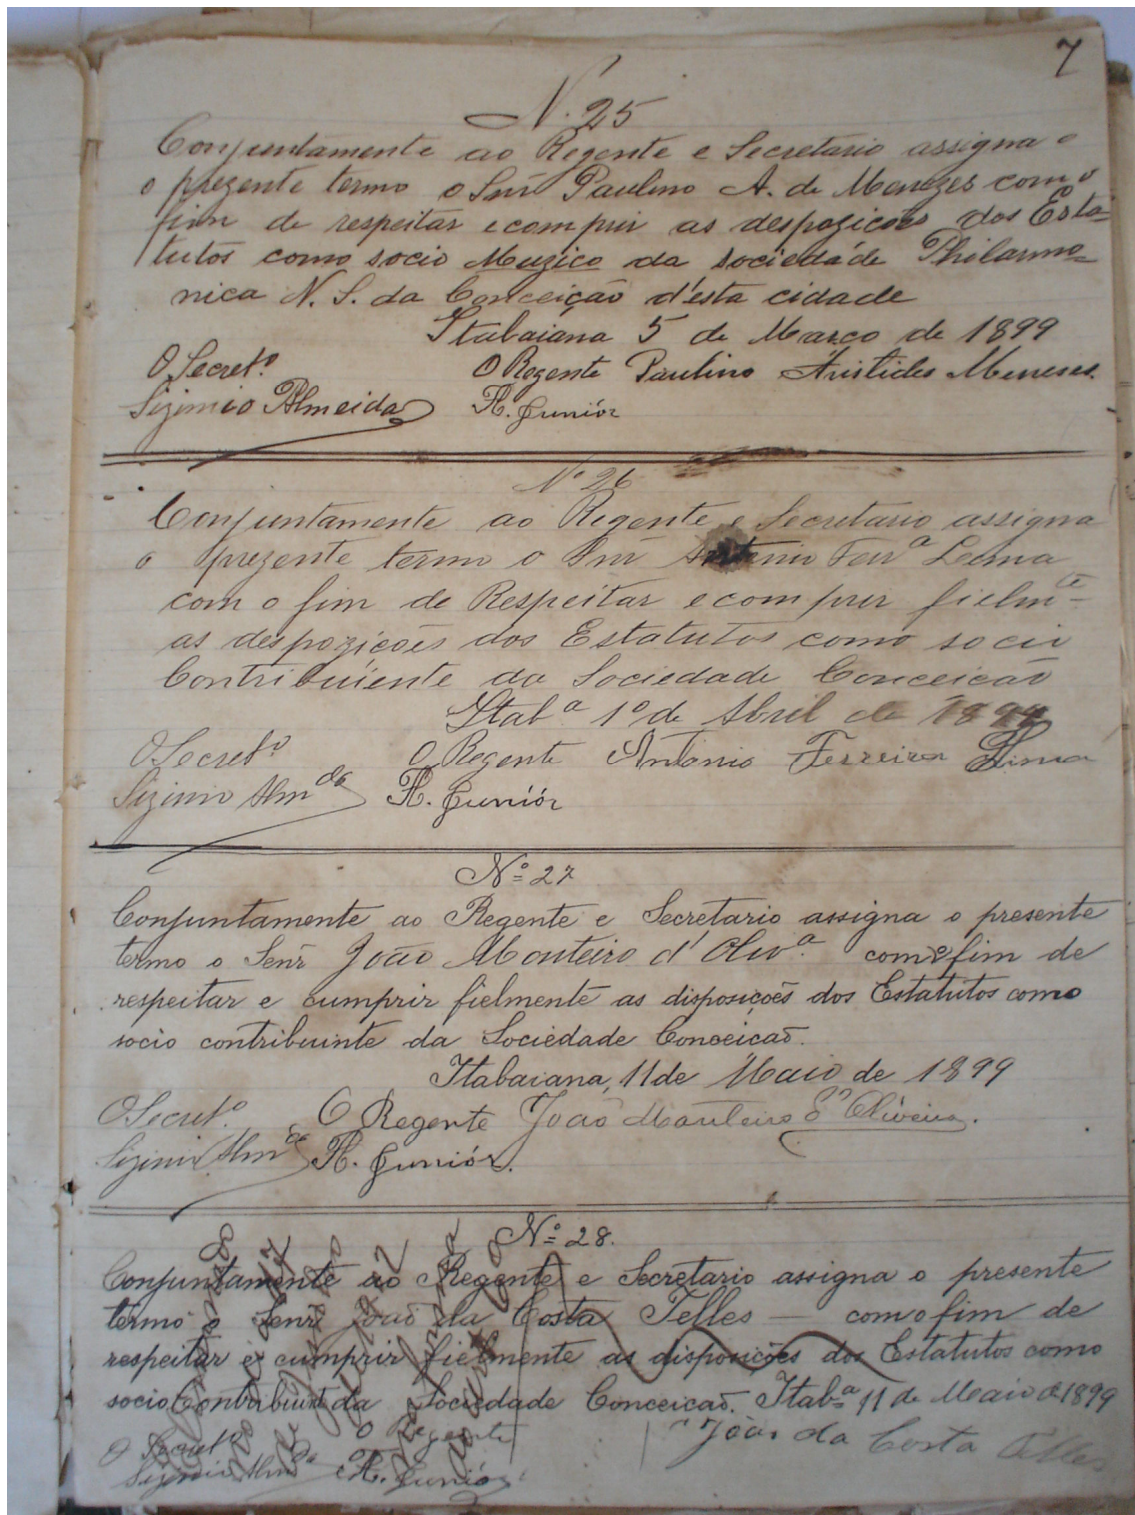 7
N. 25
Conjuntamente ao Regente e Secretario assigna
o prezente termo o Snr Paulino A. de Menezes com o
fim de respeitar e comprir as despozicões dos Esta=
tutos como socio Muzico da sociedáde Philarmo=
nica N. S. da Conceição d'ésta cidade
Itabaiana 5 de Março de 1899
O Secretº. O Regente Paulino Aristides Menezes.
Sizinio Almeida H. Juniór
Nº 26
Conjuntamente ao Regente e Secretario assigna
o prezente termo o Snr Antonio Ferrª Lema
com o fim de Respeitar e comprir fielmᵗᵉ
as despozições dos Estatutos como socio
Contribuiente da Sociedade Conceicão
Itabª 1º de Abril de 1899
O Secretº O Regente Antonio Ferreira Lima
Sizinio Almᵈᵃ H. Juniór
Nº 27
Conjuntamente ao Regente e Secretario assigna o presente
termo o Senr João Monteiro d'Olivª. com o fim de
respeitar e cumprir fielmente as disposições dos Estatutos como
socio contribuinte da Sociedade Conceicaõ.
Itabaiana, 11 de Maio de 1899
O Secretº. O Regente João Monteiro d' Oliveira.
Sizinio Almᵈᵃ H. Juniór.
Nº 28.
Conjuntamente ao Regente e Secretario assigna o presente
termo o Senr João da Costa Telles — com o fim de
respeitar e cumprir fielmente as disposições dos Estatutos como
socio Contribuint da Sociedade Conceicaõ. Itabª 11 de Maio de 1899
O Secretº O Regente João da Costa Telles
Sizinio Almᵈᵃ H. Juniór